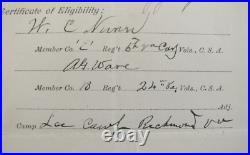 Certificate of Eligibility:
W. C. Nunn
Member Co. "C" Reg't 5th Va Cav Vols., C. S. A.
A. G. Ware
Member Co. B Reg't 24th Va, Vols., C. S. A.
Adj.
Camp Lee Camp Richmond Va